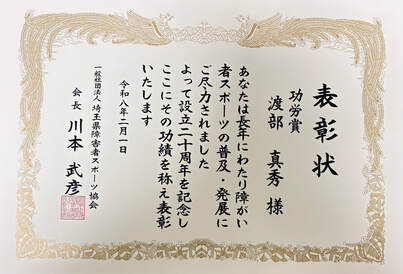 表彰状
功労賞
渡部 真秀 様
あなたは長年にわたり障がい
者スポーツの普及・発展に
ご尽力されました
よって設立二十周年を記念し
ここにその功績を称え表彰
いたします
令和八年二月一日
一般社団法人 埼玉県障害者スポーツ協会
会長 川本 武彦